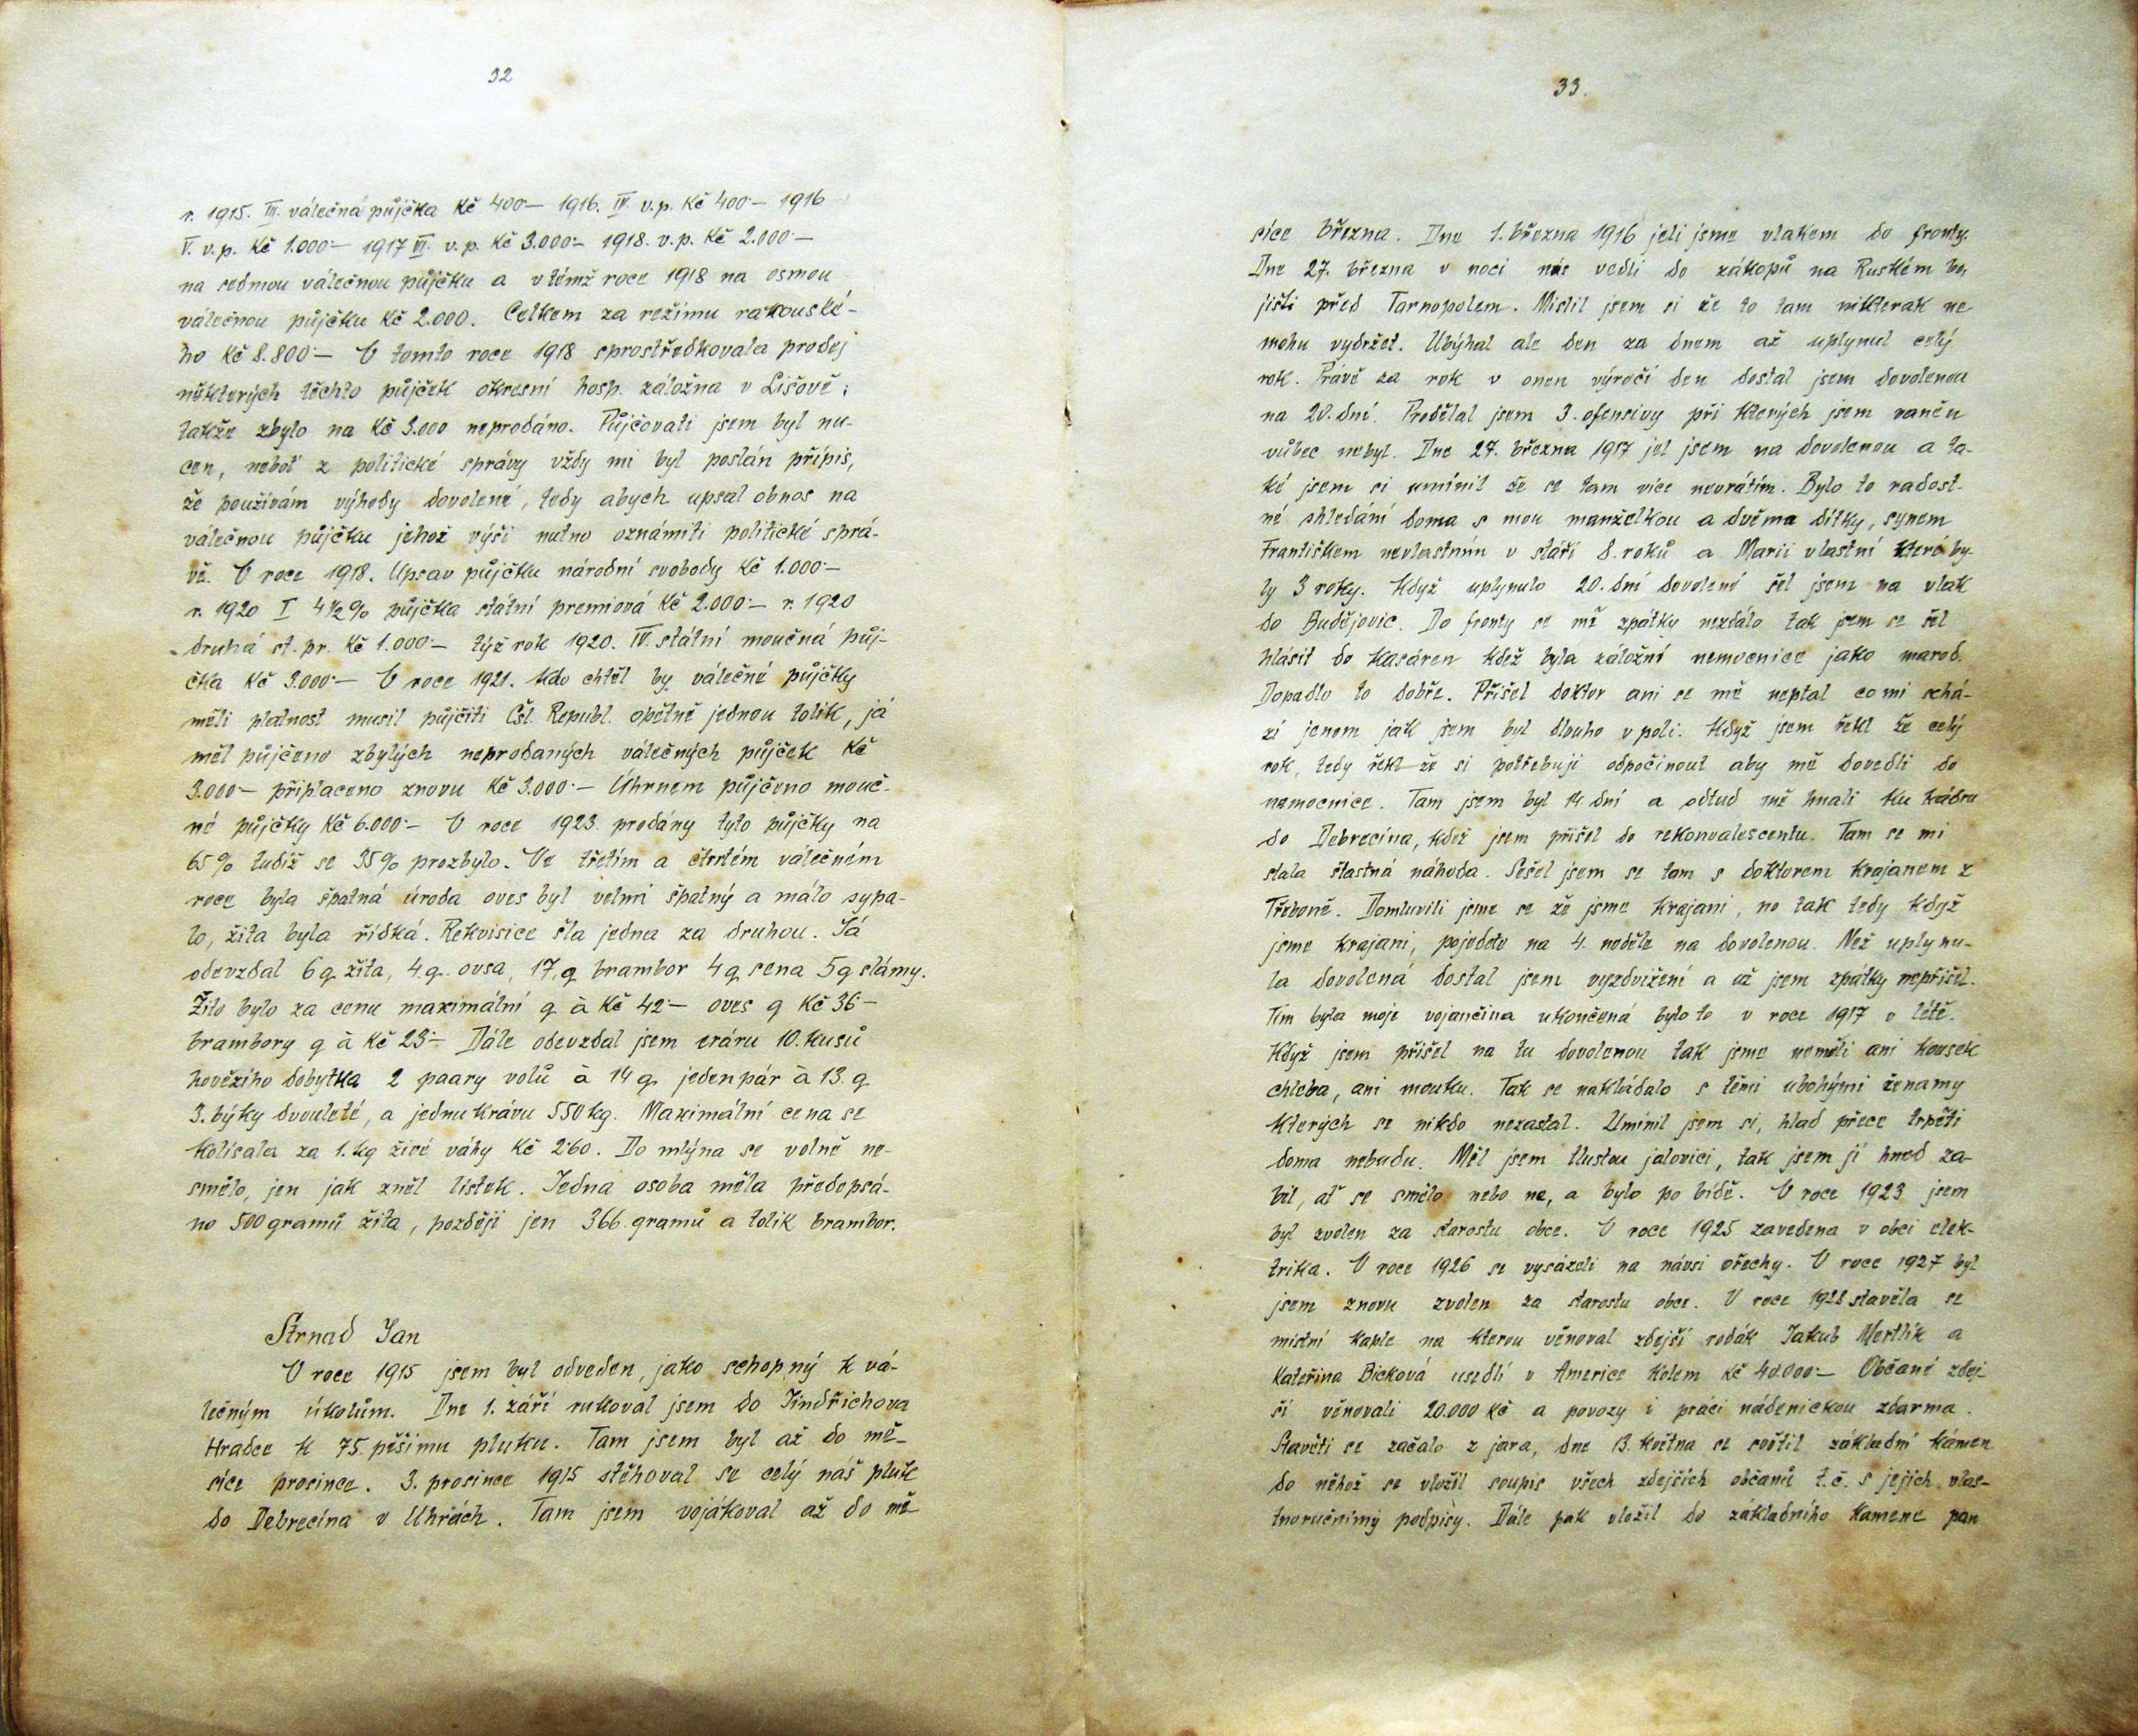 32
r. 1915. III. válečná půjčka Kč 400·— 1916. IV. v.p. Kč 400·— 1916
V. v.p. Kč 1.000·— 1917 VI. v.p. Kč 3.000·— 1918. v.p. Kč 2.000·—
na sedmou válečnou půjčku a v témž roce 1918 na osmou
válečnou půjčku Kč 2.000. Celkem za režimu rakouské-
ho Kč 8.800·— V tomto roce 1918 sprostředkovala prodej
některých těchto půjček okresní hosp. záložna v Lišově;
takže zbylo na Kč 3.000 neprodáno. Půjčovati jsem byl nu-
cen, neboť z politické správy vždy mi byl poslán přípis,
že používám výhody dovolené, tedy abych upsal obnos na
válečnou půjčku jehož výši nutno oznámiti politické sprá-
vě. V roce 1918. Upsav půjčku národní svobody Kč 1.000·—
r. 1920 I 4½% půjčka státní premiová Kč 2.000·— r. 1920
druhá st. pr. Kč 1.000·— týž rok 1920. IV. státní moučná půj-
čka Kč 3.000·— V roce 1921. Kdo chtěl by válečné půjčky
měli platnost musil půjčiti Čsl. Republ. opětně jednou tolik, já
měl půjčeno zbylých neprodaných válečných půjček Kč
3.000·— připlaceno znovu Kč 3.000·— Úhrnem půjčeno mouč-
né půjčky Kč 6.000·— V roce 1923. prodány tyto půjčky na
65% tudíž se 35% prozbylo. Ve třetím a čtvrtém válečném
roce byla špatná úroda oves byl velmi špatný a málo sypa-
lo, žita byla řídká. Rekvisice šla jedna za druhou. Já
odevzdal 6 q žita, 4. q. ovsa, 17. q brambor 4 q sena 5 q slámy.
Žito bylo za cenu maximální q à Kč 42·— oves q Kč 36·—
brambory q à Kč 23·— Dále odevzdal jsem eráru 10. kusů
hovězího dobytka 2 paary volů à 14 q jeden pár à 13. q
3. býky dvouleté, a jednu krávu 550 kg. Maximální cena se
kolísala za 1. kg živé váhy Kč 2·60. Do mlýna se volně ne-
smělo, jen jak zněl lístek. Jedna osoba měla předepsá-
no 500 gramů žita, později jen 366 gramů a tolik brambor.
Strnad Jan
V roce 1915 jsem byl odveden, jako schopný k vá-
lečným úkolům. Dne 1. září rukoval jsem do Jindřichova
Hradce k 75. pěšímu pluku. Tam jsem byl až do mě-
síce prosince. 3. prosince 1915 stěhoval se celý náš pluk
do Debrecína v Uhřách. Tam jsem vojákoval až do mě-
33.
síce března. Dne 1. března 1916 jeli jsme vlakem do fronty.
Dne 27. března v noci nás vedli do zákopů na Ruském bo
jišti před Tarnopolem. Mislil jsem si že to tam nikterak ne
mohu vydržet. Ubýhal ale den za dnem až uplynul celý
rok. Právě za rok v onen výročí den dostal jsem dovolenou
na 20. dní. Prodělal jsem 3. ofensivy při kterých jsem raněn
vůbec nebyl. Dne 27. března 1917 jel jsem na dovolenou a ta-
ké jsem si umínil že se tam více nevrátím. Bylo to radost-
né shledání doma s mou manželkou a dvěma dítky, synem
Františkem nevlastním v stáří 8. roků a Marií vlastní které by-
ly 3 roky. Když uplynulo 20. dní dovolené šel jsem na vlak
do Budějovic. Do fronty se mě zpátky nezdálo tak jsem se šel
hlásit do kasáren kdež byla záložní nemocnice jako marod.
Dopadlo to dobře. Přišel doktor ani se mě neptal co mi schá-
zí jenom jak jsem byl dlouho v poli. Když jsem řekl že celý
rok, tedy řekl že si potřebuji odpočinout aby mě dovedli do
nemocnice. Tam jsem byl 14 dní a odtud mě hnali ku kádru
do Debrecína, kdež jsem přišel do rekonvalescentu. Tam se mi
stala šťastná náhoda. Sešel jsem se tam s doktorem krajanem z
Třeboně. Domluvili jsme se že jsme krajani, no tak tedy když
jsme krajani, pojedete na 4. neděle na dovolenou. Než uplynu-
la dovolená dostal jsem vyzdvižení a už jsem zpátky nepřišel.
Tím byla moje vojančina ukončená bylo to v roce 1917 v létě.
Když jsem přišel na tu dovolenou tak jsme neměli ani kousek
chleba, ani mouku. Tak se nakládalo s těmi ubohými ženamy
kterých se nikdo nezastal. Umínil jsem si, hlad přece trpěti
doma nebudu. Měl jsem tlustou jalovici, tak jsem ji hned za-
bil, ať se smělo nebo ne, a bylo po bídě. V roce 1923 jsem
byl zvolen za starostu obce. V roce 1925 zavedena v obci elek-
trika. V roce 1926 se vysázeli na návsi ořechy. V roce 1927 byl
jsem znovu zvolen za starostu obce. V roce 1928 stavěla se
místní kaple na kterou věnoval zdejší rodák Jakub Mertlík a
Kateřina Bicková usedlí v Americe kolem Kč 40.000·— Občané zdej-
ší věnovali 20.000 Kč a povozy i práci nádenickou zdarma.
Stavěti se začalo z jara, dne 13. května se světil základní kámen
do něhož se vložil soupis všech zdejších občanů t.č. s jejich vlas-
tnoručnímy podpisy. Dále pak vložil do základního kamene pan